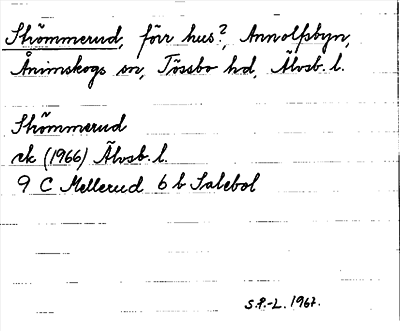 Strömmerud, förr hus?, Annolfsbyn,
Ånimskogs sn, Tössbo hd, Älvsb. l.
Strömmerud
ek (1966) Älvsb. l.
9 C Mellerud 6 b Salebol
S.P.-L. 1967.